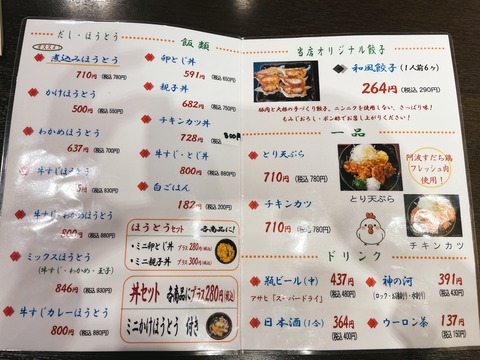 だし・ほうとう
オススメ
煮込みほうとう
710円(税込 780円)
かけほうとう
500円(税込 550円)
わかめほうとう
637円(税込 700円)
牛すじほうとう
5円(税込 830円)
牛すじ・わかめほうとう
800円(税込 880円)
ミックスほうとう
(牛すじ・わかめ・玉子)
846円(税込 930円)
牛すじカレーほうとう
800円(税込 880円)
飯類
卵とじ丼
591円(税込 650円)
親子丼
682円(税込 750円)
チキンカツ丼
728円(税込 800円)
牛すじ・とじ丼
800円(税込 880円)
白ごはん
182円(税込 200円)
ほうとうセット 各商品に!
ミニ卵とじ丼 プラス280円(税込)
ミニ親子丼 プラス300円(税込)
丼セット 各商品にプラス280円(税込)
ミニかけほうとう 付き
当店オリジナル餃子
和風餃子(1人前6ケ)
264円(税込 290円)
豚肉と大根の手づくり餃子。ニンニクを使用しない、さっぱり味!
もみじおろし・ポン酢でお召し上がりください!
一品
とり天ぷら
710円(税込 780円)
チキンカツ
710円(税込 780円)
とり天ぷら
阿波すだち鶏
フレッシュ肉
使用!
チキンカツ
ドリンク
瓶ビール(中) 437円
アサヒ「スーパードライ」 (税込 480円)
日本酒(1合) 364円
(税込 400円)
神の河 391円
(ロック・お湯割り・水割り) (税込 430円)
ウーロン茶 137円
(税込 150円)